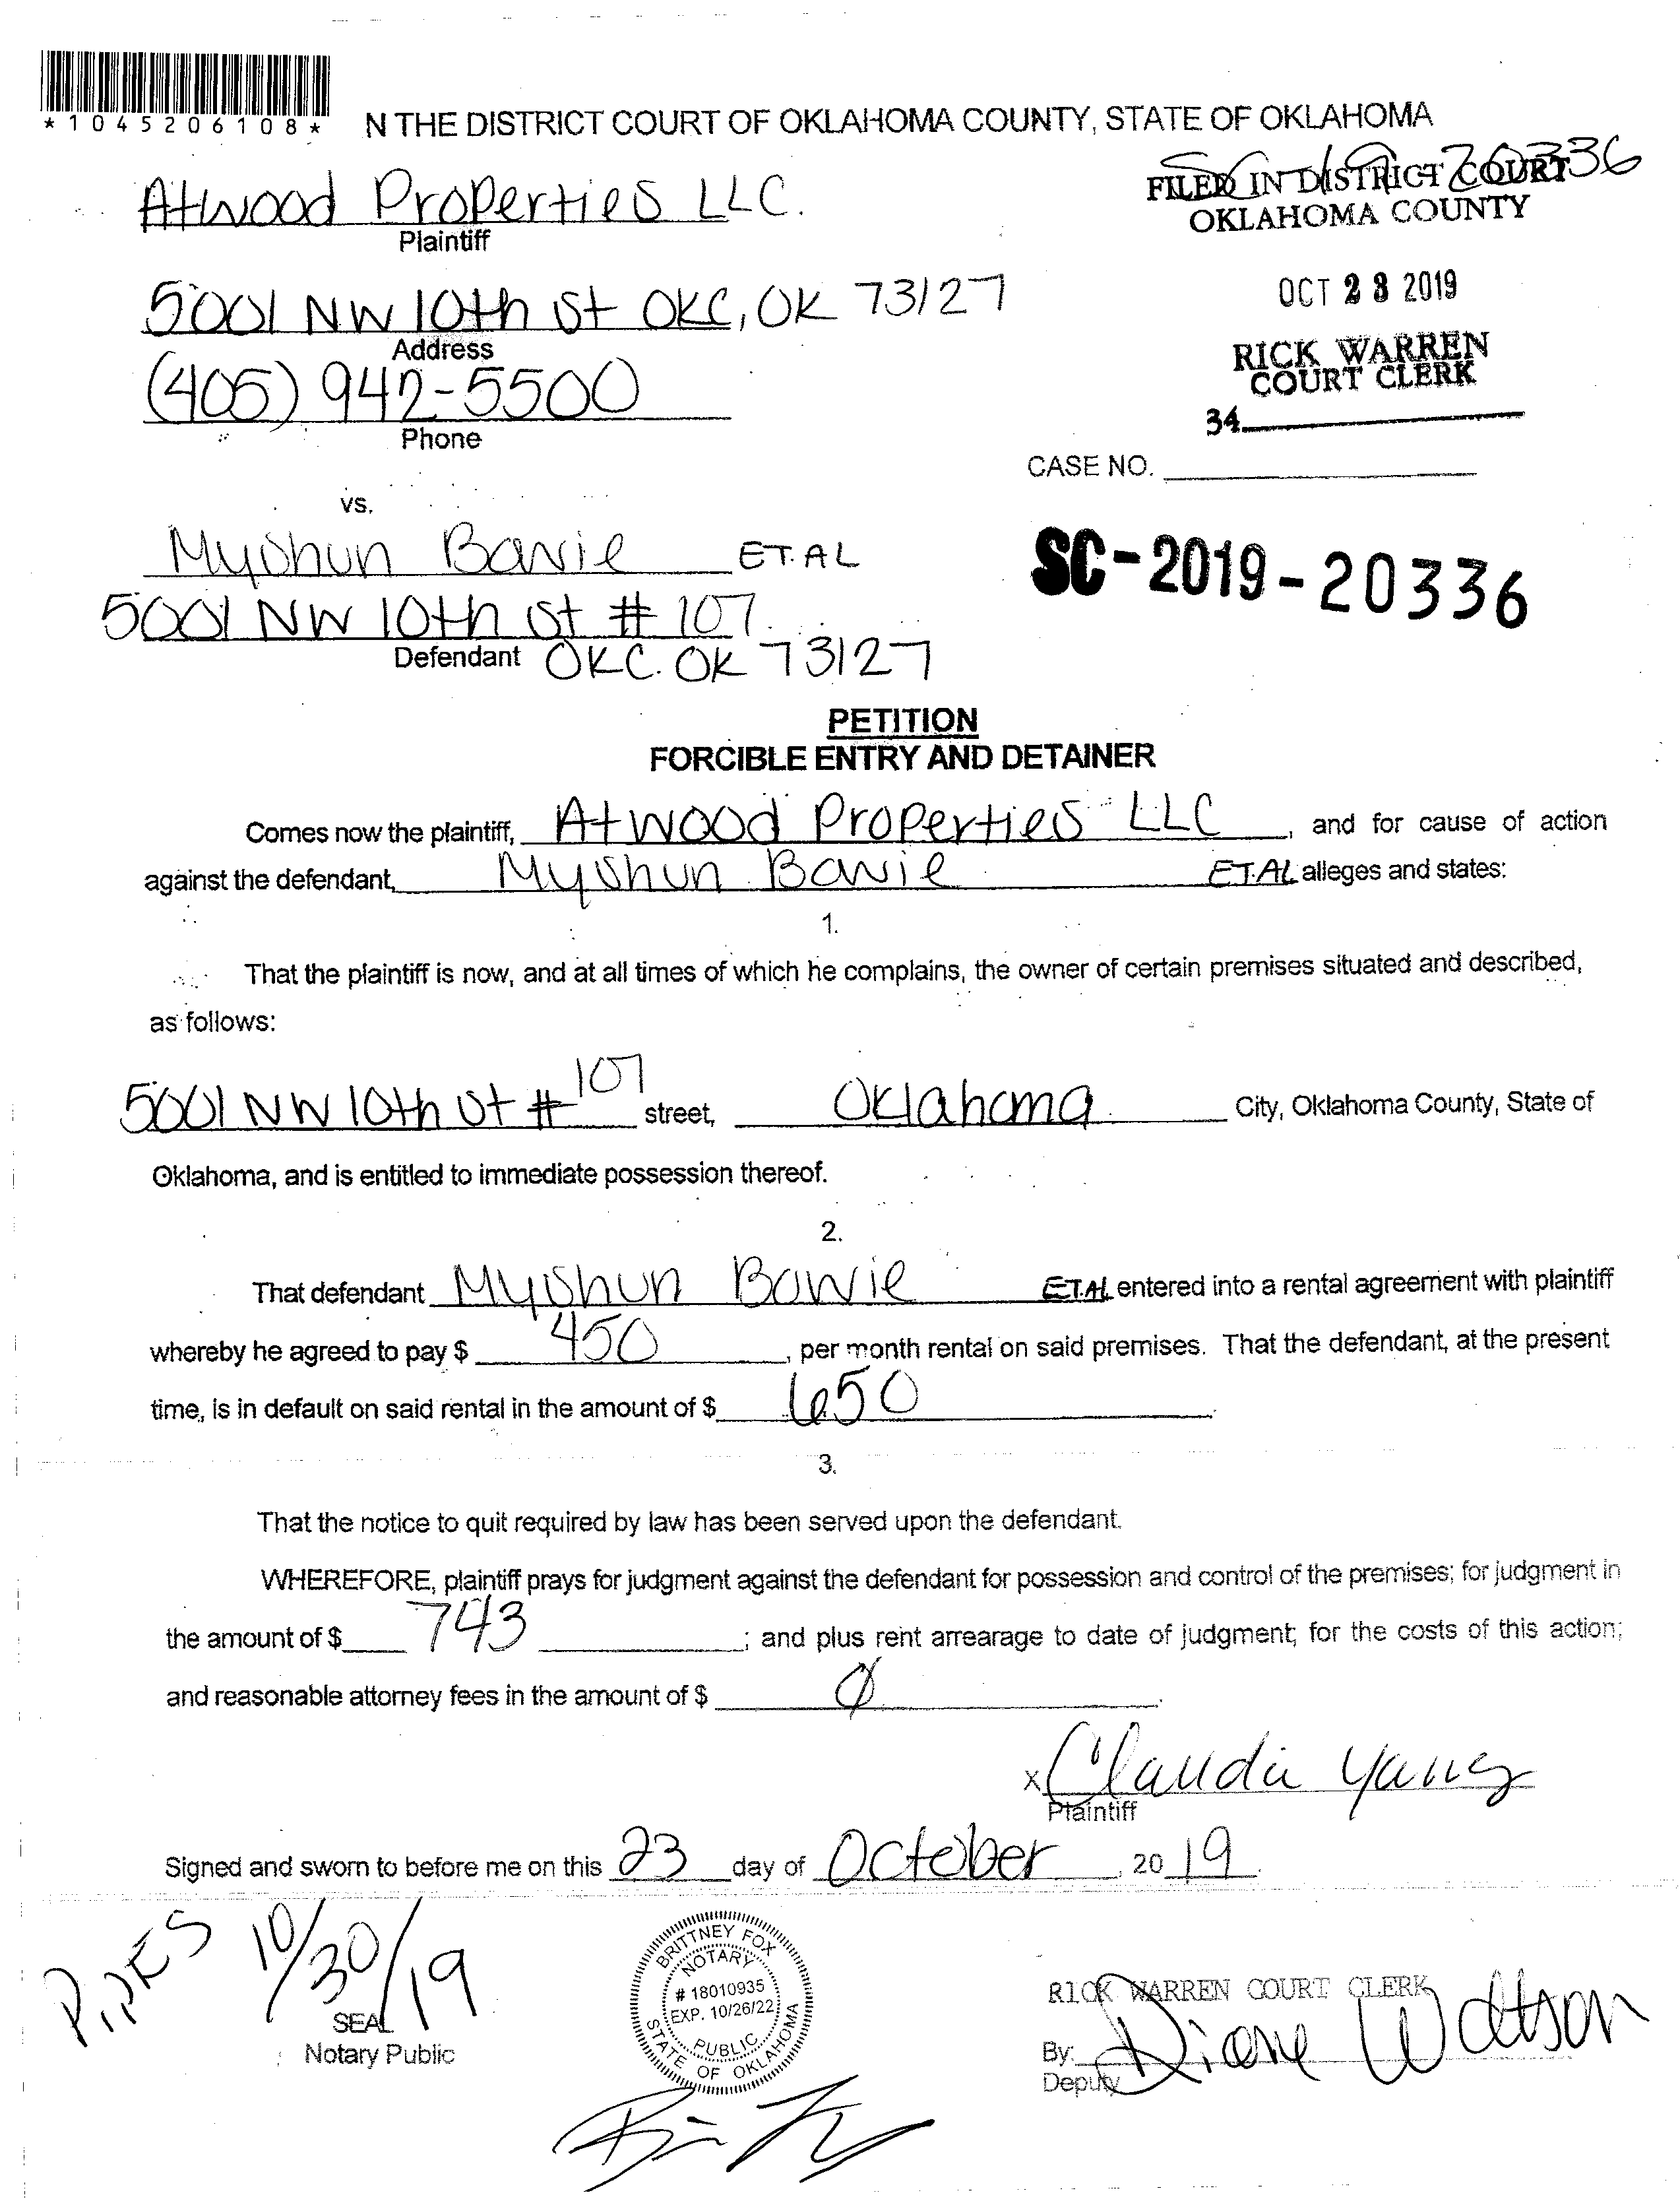 *1045206108*
N THE DISTRICT COURT OF OKLAHOMA COUNTY, STATE OF OKLAHOMA
SC 19 20336
FILED IN DISTRICT COURT
OKLAHOMA COUNTY
Atwood Properties LLC.
Plaintiff
5001 NW 10th St OKC, OK 73127
Address
OCT 23 2019
(405) 942-5500
Phone
RICK WARREN
COURT CLERK
34
CASE NO.
vs.
Myshun Bowie ET.AL
SC-2019-20336
5001 NW 10th St # 107
Defendant OKC. OK 73127
PETITION
FORCIBLE ENTRY AND DETAINER
Comes now the plaintiff, Atwood Properties LLC, and for cause of action
against the defendant, Myshun Bowie ET.AL alleges and states:
1.
That the plaintiff is now, and at all times of which he complains, the owner of certain premises situated and described,
as follows:
5001 NW 10th St # 107 street, Oklahoma City, Oklahoma County, State of
Oklahoma, and is entitled to immediate possession thereof.
2.
That defendant Myshun Bowie ET.AL entered into a rental agreement with plaintiff
whereby he agreed to pay $ 450, per month rental on said premises. That the defendant, at the present
time, is in default on said rental in the amount of $ 650.
3.
That the notice to quit required by law has been served upon the defendant.
WHEREFORE, plaintiff prays for judgment against the defendant for possession and control of the premises; for judgment in
the amount of $ 743; and plus rent arrearage to date of judgment; for the costs of this action;
and reasonable attorney fees in the amount of $ 0.
x Claudia Yanez
Plaintiff
Signed and sworn to before me on this 23 day of October, 2019.
10/30/19
SEAL
Notary Public
BRITTNEY FOX
NOTARY
# 18010935
EXP. 10/26/22
PUBLIC
STATE OF OKLAHOMA
RICK WARREN COURT CLERK
By: Diane Watson
Deputy